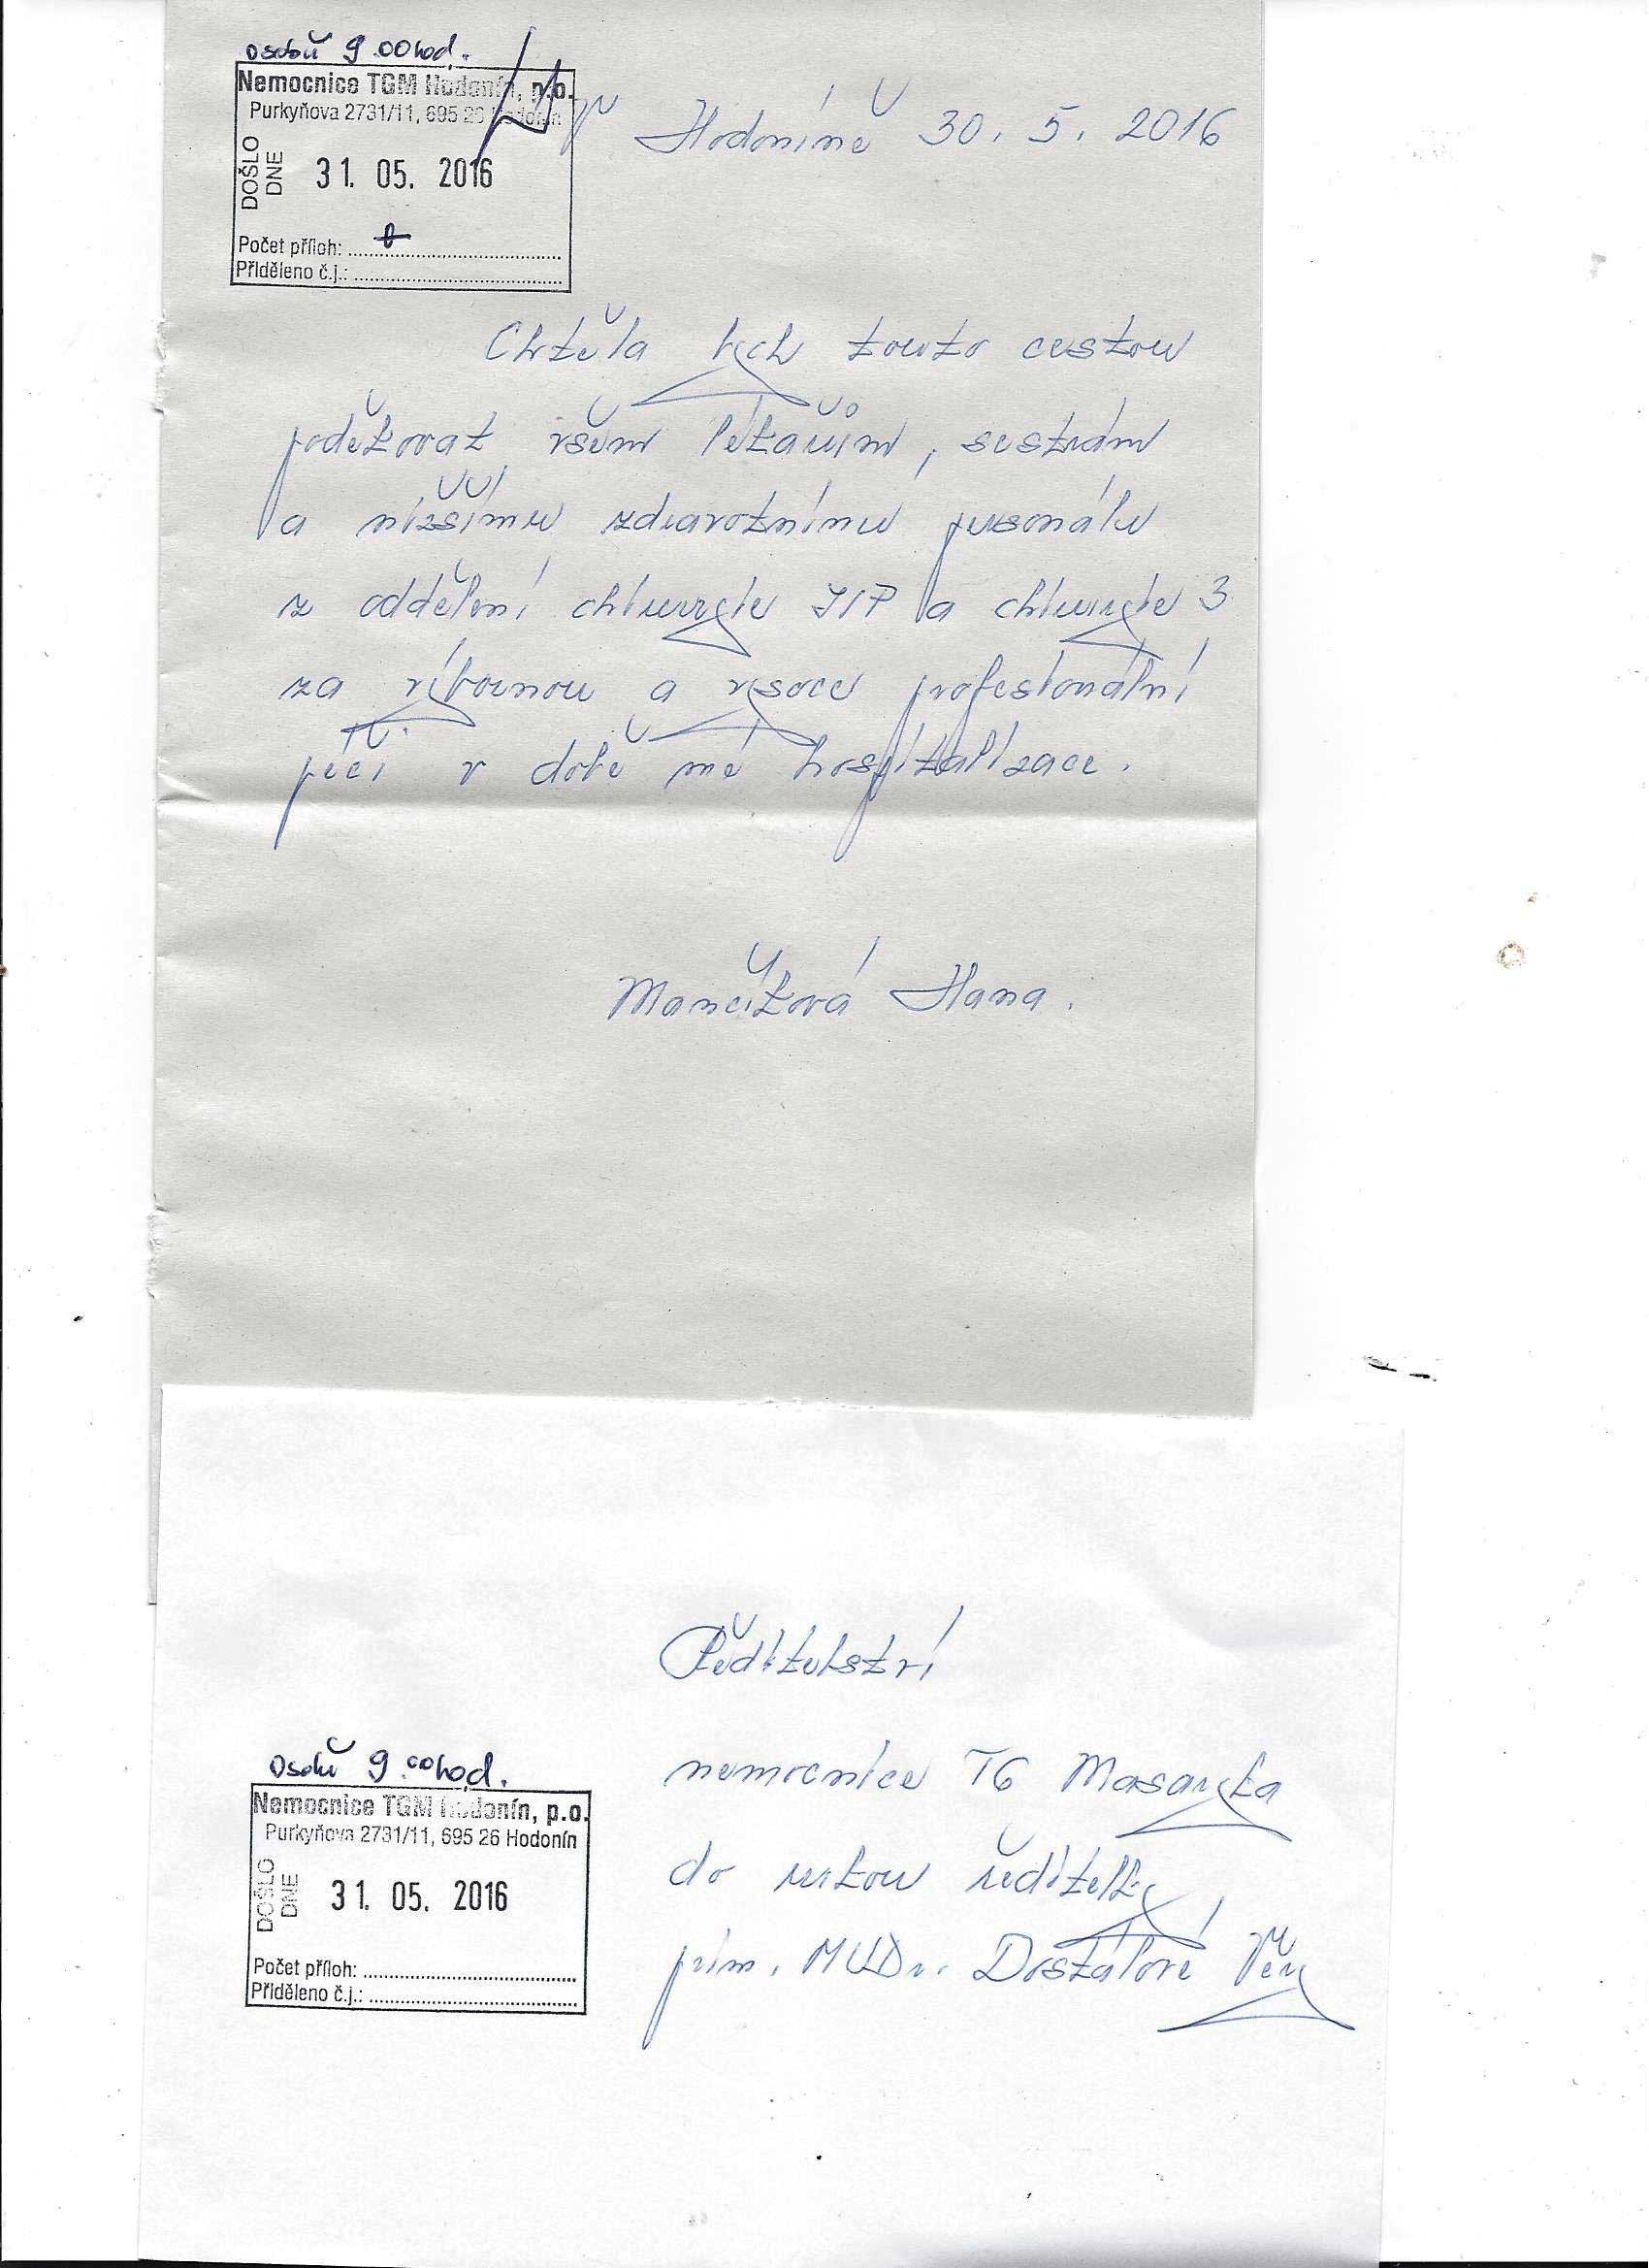 osobně 9.00 hod.
Nemocnice TGM Hodonín, p.o.
Purkyňova 2731/11, 695 26 Hodonín
DOŠLO
DNE
31. 05. 2016
Počet příloh: 0
Přiděleno č.j.:
V Hodoníně 30. 5. 2016
Chtěla bych touto cestou
poděkovat všem lékařům, sestrám
a nižšímu zdravotnímu personálu
z oddělení chirurgie JIP a chirurgie 3
za výbornou a vysoce profesionální
péči v době mé hospitalizace.
Mančíková Hana.
Ředitelství
nemocnice TG Masaryka
do rukou ředitelky
prim. MUDr. Dostálové Věry
osobně 9.00 hod.
Nemocnice TGM Hodonín, p.o.
Purkyňova 2731/11, 695 26 Hodonín
DOŠLO
DNE
31. 05. 2016
Počet příloh:
Přiděleno č.j.: